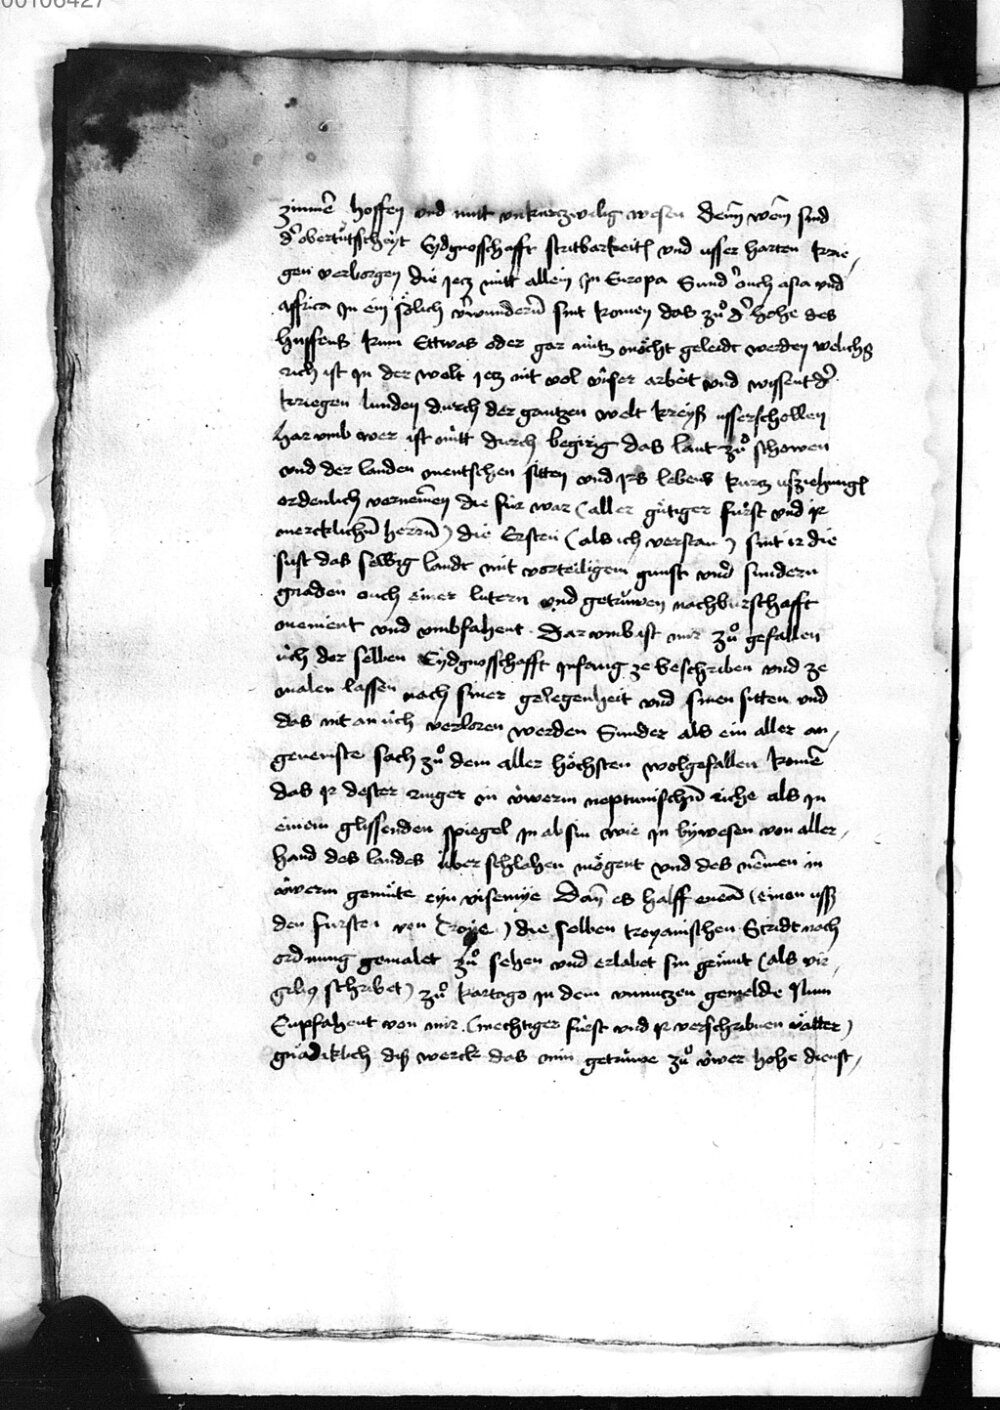 00106427
zimmē hoffen vnd nutt vnkurtzwilig wesen Denn wem sind
dˀ obertütscheyt Eydgnosschafft stritbarkeit vnd usser harten krie,
gen verborgen die jetz nütt allein jn Europa Sundˀ ouch asia vnd
affrica jn ein sölich vˀwundern sint komen das zuͦ dˀ höhe des
huffens kum Ettwas oder gar nütz möcht geleidt werden welichs
rich ist jn der welt jetz nit vol vnser arbeit vnd wyssent dˀ
kriegen lunden durch der gantzen welt kreyß usserschollen
har vmb wer ist nütt durch begirig das lant zuͦ schowen
vnd der landen mentschen sitten vnd jrs lebens kurtz usziehung
ordenlich vernemen die für war (aller gütiger fürst vnd jr
mercklichen herren) die Ersten (als ich verstan) sint ir die
sust das selbig landt mit vorteiligem gunst vnd sundern
gnaden ouch einer lutern vnd getrüwen nachburschafft
meinent vnd vmbfahent Dar vmb ist mir zuͦ gefallen
üch der selben Eydgnosschafft jnfang ze beschriben vnd ze
malen lassen nach siner gelegenheit vnd sinen sitten vnd
das nit an üch verloren werden Sunder als ein aller an,
genemste sach zuͦ dem aller höchsten wolgefallen komē
das jr dester ringer in üwerm neptunischen riche als jn
einem glissenden spiegel jn absin wie jn bywesen von aller,
hand des landes über schlahen mögent vnd des nemen in
üwerm gemüte eyn visemye Dann es halff eneā (einen uss
den fursten von Troye) die selben troyanischen Stridt nach
ordnung gemalet zuͦ sehen vnd erlabet sin gemüt (als vir,
gilius schribet) zuͦ kartago jn dem vnnutzen gemelde Nun
Enpfahent von mir (mechtiger fürst vnd jr verschribnen vätter)
gnädiklich diß werck das min getrüwe zuͦ üwer hohe dienst,